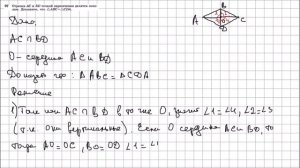 Отрезки AC и BD точкой пересечения делятся попо-
лам. Докажите, что △ABC = △CDA.
B
A
C
O
D
Дано:
AC ∩ BD
O - середина AC и BD
Доказать что: △ABC = △CDA
Решение
1) Так как AC ∩ BD в точке O, значит ∠1=∠4, ∠2=∠3
(т.к они вертикальные). Если O середина AC и BD, то
тогда AO=OC, BO=OD ∠1=∠